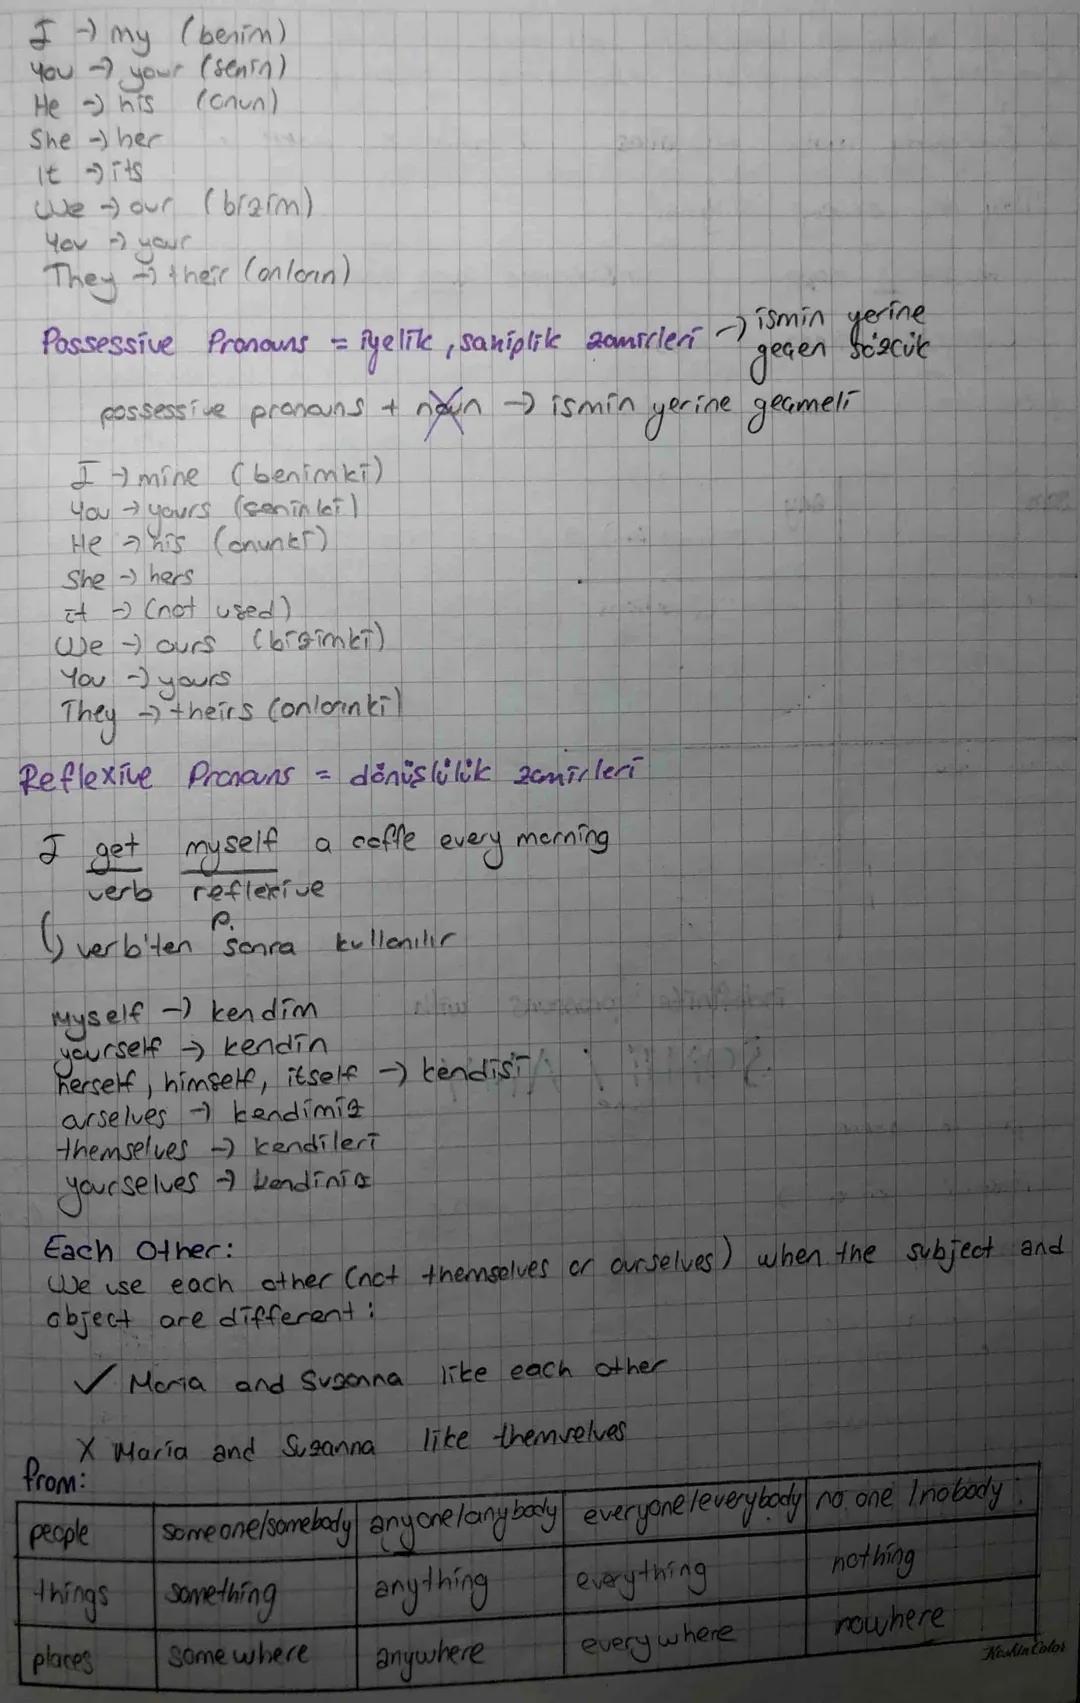 I → my (benim)
You → your (senin)
He → his (onun)
She → her
It → its
We → our (bizim)
You → your
They → their (onların)
Possessive Pronouns = iyelik, sahiplik zamirleri → ismin yerine
geçen sözcük
possessive pronouns + noun → ismin yerine geçmeli
I → mine (benimki)
You → yours (seninki)
He → his (onunki)
She → hers
it → (not used)
We → ours (bizimki)
You → yours
They → theirs (onlarınki)
Reflexive Pronouns = dönüşlülük zamirleri
I get myself a coffe every morning
verb reflexive
p.
↳ verb'ten sonra kullanılır
myself → kendim
yourself → kendin
herself, himself, itself → kendisi
ourselves → kendimiz
themselves → kendileri
yourselves → kendiniz
Each Other:
We use each other (not themselves or ourselves) when the subject and
object are different:
✓ Maria and Suzanna like each other
X Maria and Suzanna like themselves
from:
people someone/somebody anyone/anybody everyone/everybody no one/nobody
things something anything everything nothing
places somewhere anywhere everywhere nowhere
KeskinColor